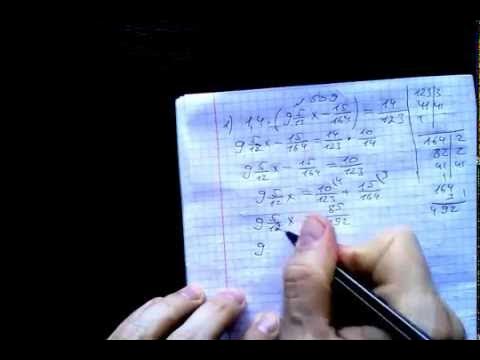 № 599
1) 1,4 · (9 5/12 x - 15/164) = 14/123
9 5/12 x - 15/164 = 14/123 · 10/14
9 5/12 x - 15/164 = 10/123
9 5/12 x = 10/123 + 15/164
9 5/12 x 85 492
9
123 3
41 41
1
164 2
82 2
41 41
1
164
3
492